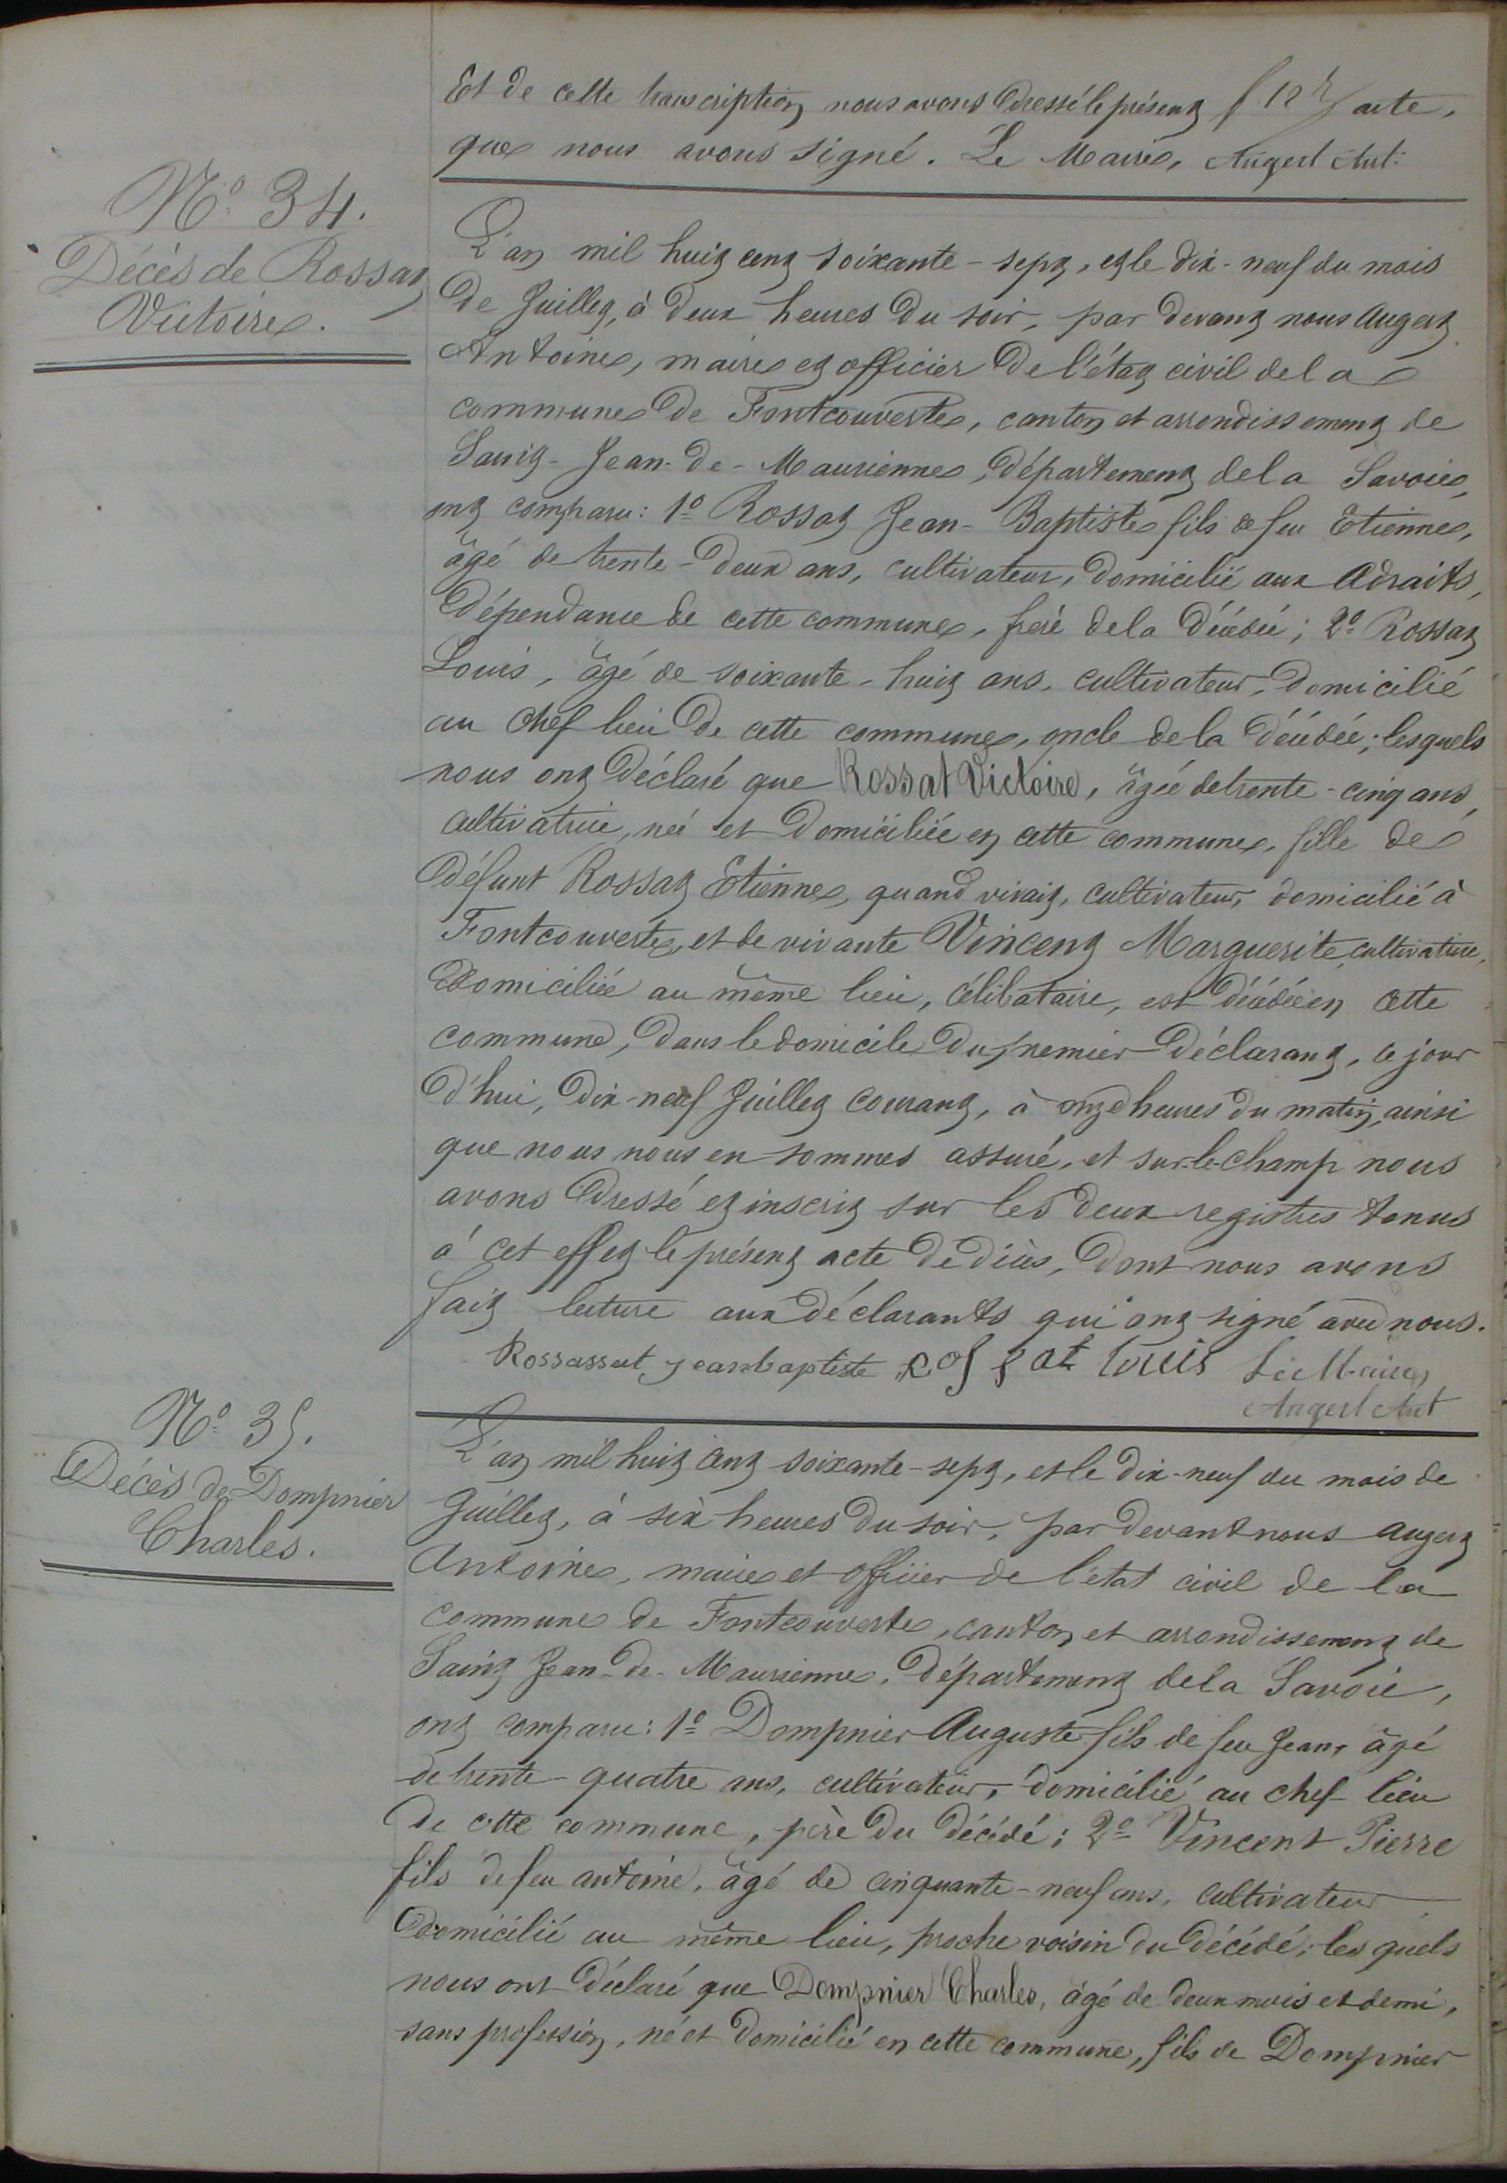 Et de cette transcription nous avons dressé le présent acte,
que nous avons signé. Le Maire, Augert Ant.
N° 34.
Décès de Rossat
Victoire.
L'an mil huit cent soixante-sept, et le dix-neuf du mois
de Juillet, à deux heures du soir, par devant nous Augert
Antoine, maire et officier de l'état civil de la
commune de Fontcouverte, canton et arrondissement de
Saint-Jean-de-Maurienne, département de la Savoie,
ont comparu: 1° Rossat Jean-Baptiste fils de feu Etienne,
âgé de trente-deux ans, cultivateur, domicilié aux Adraits,
dépendance de cette commune, frère de la décédée; 2° Rossat
Louis, âgé de soixante-huit ans, cultivateur, domicilié
au chef lieu de cette commune, oncle de la décédée; lesquels
nous ont déclaré que Rossat Victoire, âgée de trente-cinq ans,
cultivatrice, née et domiciliée en cette commune, fille de
défunt Rossat Etienne, quand vivait, cultivateur, domicilié à
Fontcouverte, et de vivante Vincent Marguerite, cultivatrice,
domiciliée au même lieu, célibataire, est décédée en cette
commune, dans le domicile du premier déclarant, ce jour
d'hui, dix-neuf Juillet courant, à onze heures du matin, ainsi
que nous nous en sommes assuré, et sur-le-champ nous
avons dressé et inscrit sur les deux registres tenus
à cet effet le présent acte de décès, dont nous avons
fait lecture aux déclarants qui ont signé avec nous.
Rossassat jeanbaptiste Rossat louis Le Maire
Augert Ant
N° 35.
Décès de Dompnier
Charles.
L'an mil huit cent soixante-sept, et le dix-neuf du mois de
Juillet, à six heures du soir, par devant nous Augert
Antoine, maire et officier de l'état civil de la
commune de Fontcouverte, canton et arrondissement de
Saint Jean-de-Maurienne, département de la Savoie,
ont comparu: 1° Dompnier Auguste fils de feu Jean, âgé
de trente-quatre ans, cultivateur, domicilié au chef lieu
de cette commune, père du décédé; 2° Vincent Pierre
fils de feu antoine, âgé de cinquante-neuf ans, cultivateur
domicilié au même lieu, proche voisin du décédé; les quels
nous ont déclaré que Dompnier Charles, âgé de deux mois et demi,
sans profession, né et domicilié en cette commune, fils de Dompnier